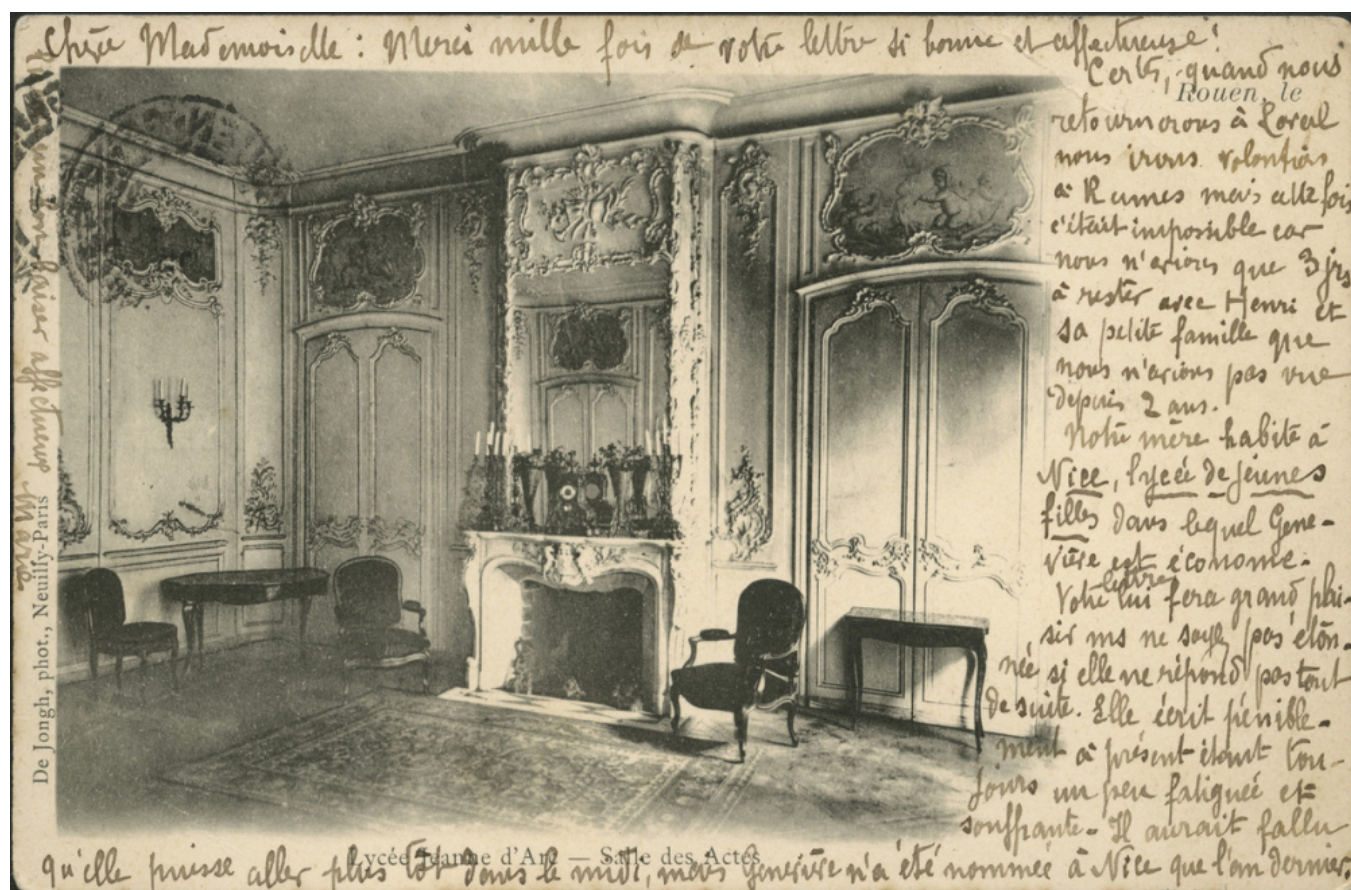 Chère Mademoiselle : Merci mille fois de votre lettre si bonne et affectueuse !
Certes, quand nous
Rouen, le
retournerons à
nous irons volontiers
à Rennes mais cette fois
c'était impossible car
nous n'avions que 3 jrs
à rester avec Henri et
sa petite famille que
nous n'avions pas vue
depuis 2 ans.
Notre mère habite à
Nice, lycée de jeunes
filles dans lequel Gene-
viève est économe.
Votre lettre lui fera grand plai-
sir ms ne soyez pas éton-
née si elle ne répond pas tout
de suite. Elle écrit pénible-
ment à présent étant tou-
jours un peu fatiguée et
souffrante - Il aurait fallu
qu'elle puisse aller plus tôt dans le midi, mais Geneviève n'a été nommée à Nice que l'an dernier,
Lycée Jeanne d'Arc — Salle des Actes
De Jongh, phot., Neuilly-Paris
bon baiser affectueux Marie